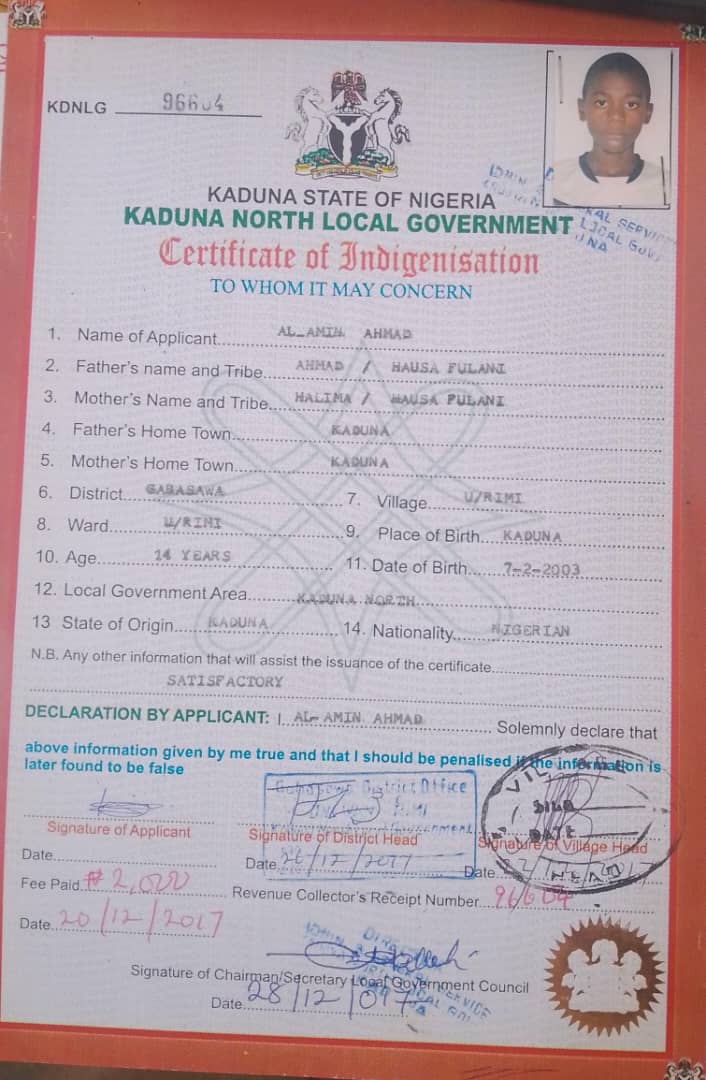 KDNLG 96604
KADUNA STATE OF NIGERIA
KADUNA NORTH LOCAL GOVERNMENT
Certificate of Indigenisation
TO WHOM IT MAY CONCERN
1. Name of Applicant AL-AMIN AHMAD
2. Father's name and Tribe AHMAD / HAUSA FULANI
3. Mother's Name and Tribe HALIMA / HAUSA FULANI
4. Father's Home Town KADUNA
5. Mother's Home Town KADUNA
6. District GABASAWA 7. Village U/RIMI
8. Ward U/RIMI 9. Place of Birth KADUNA
10. Age 14 YEARS 11. Date of Birth 7-2-2003
12. Local Government Area KADUNA NORTH
13 State of Origin KADUNA 14. Nationality NIGERIAN
N.B. Any other information that will assist the issuance of the certificate
SATISFACTORY
DECLARATION BY APPLICANT: I AL-AMIN AHMAD Solemnly declare that
above information given by me true and that I should be penalised if the information is
later found to be false
District Office
VILLAGE
SIGN
DATE
HEAD
Signature of Applicant Signature of District Head Signature of Village Head
Date Date 20/12/2017 Date
Fee Paid ₦2,000 Revenue Collector's Receipt Number 96604
Date 20/12/2017
Signature of Chairman/Secretary Local Government Council
Date 28/12/017